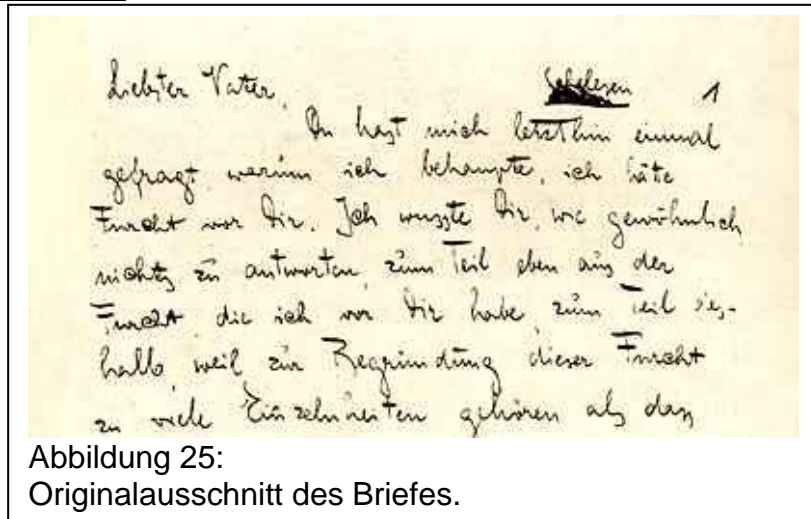 Liebster Vater, Schelesen 1
Du hast mich letzthin einmal
gefragt, warum ich behaupte, ich hätte
Furcht vor Dir. Ich wusste Dir, wie gewöhnlich
nichts zu antworten, zum Teil eben aus der
Furcht die ich vor Dir habe, zum Teil des-
halb, weil zur Begründung dieser Furcht
zu viele Einzelnheiten gehören als dass
Abbildung 25:
Originalausschnitt des Briefes.